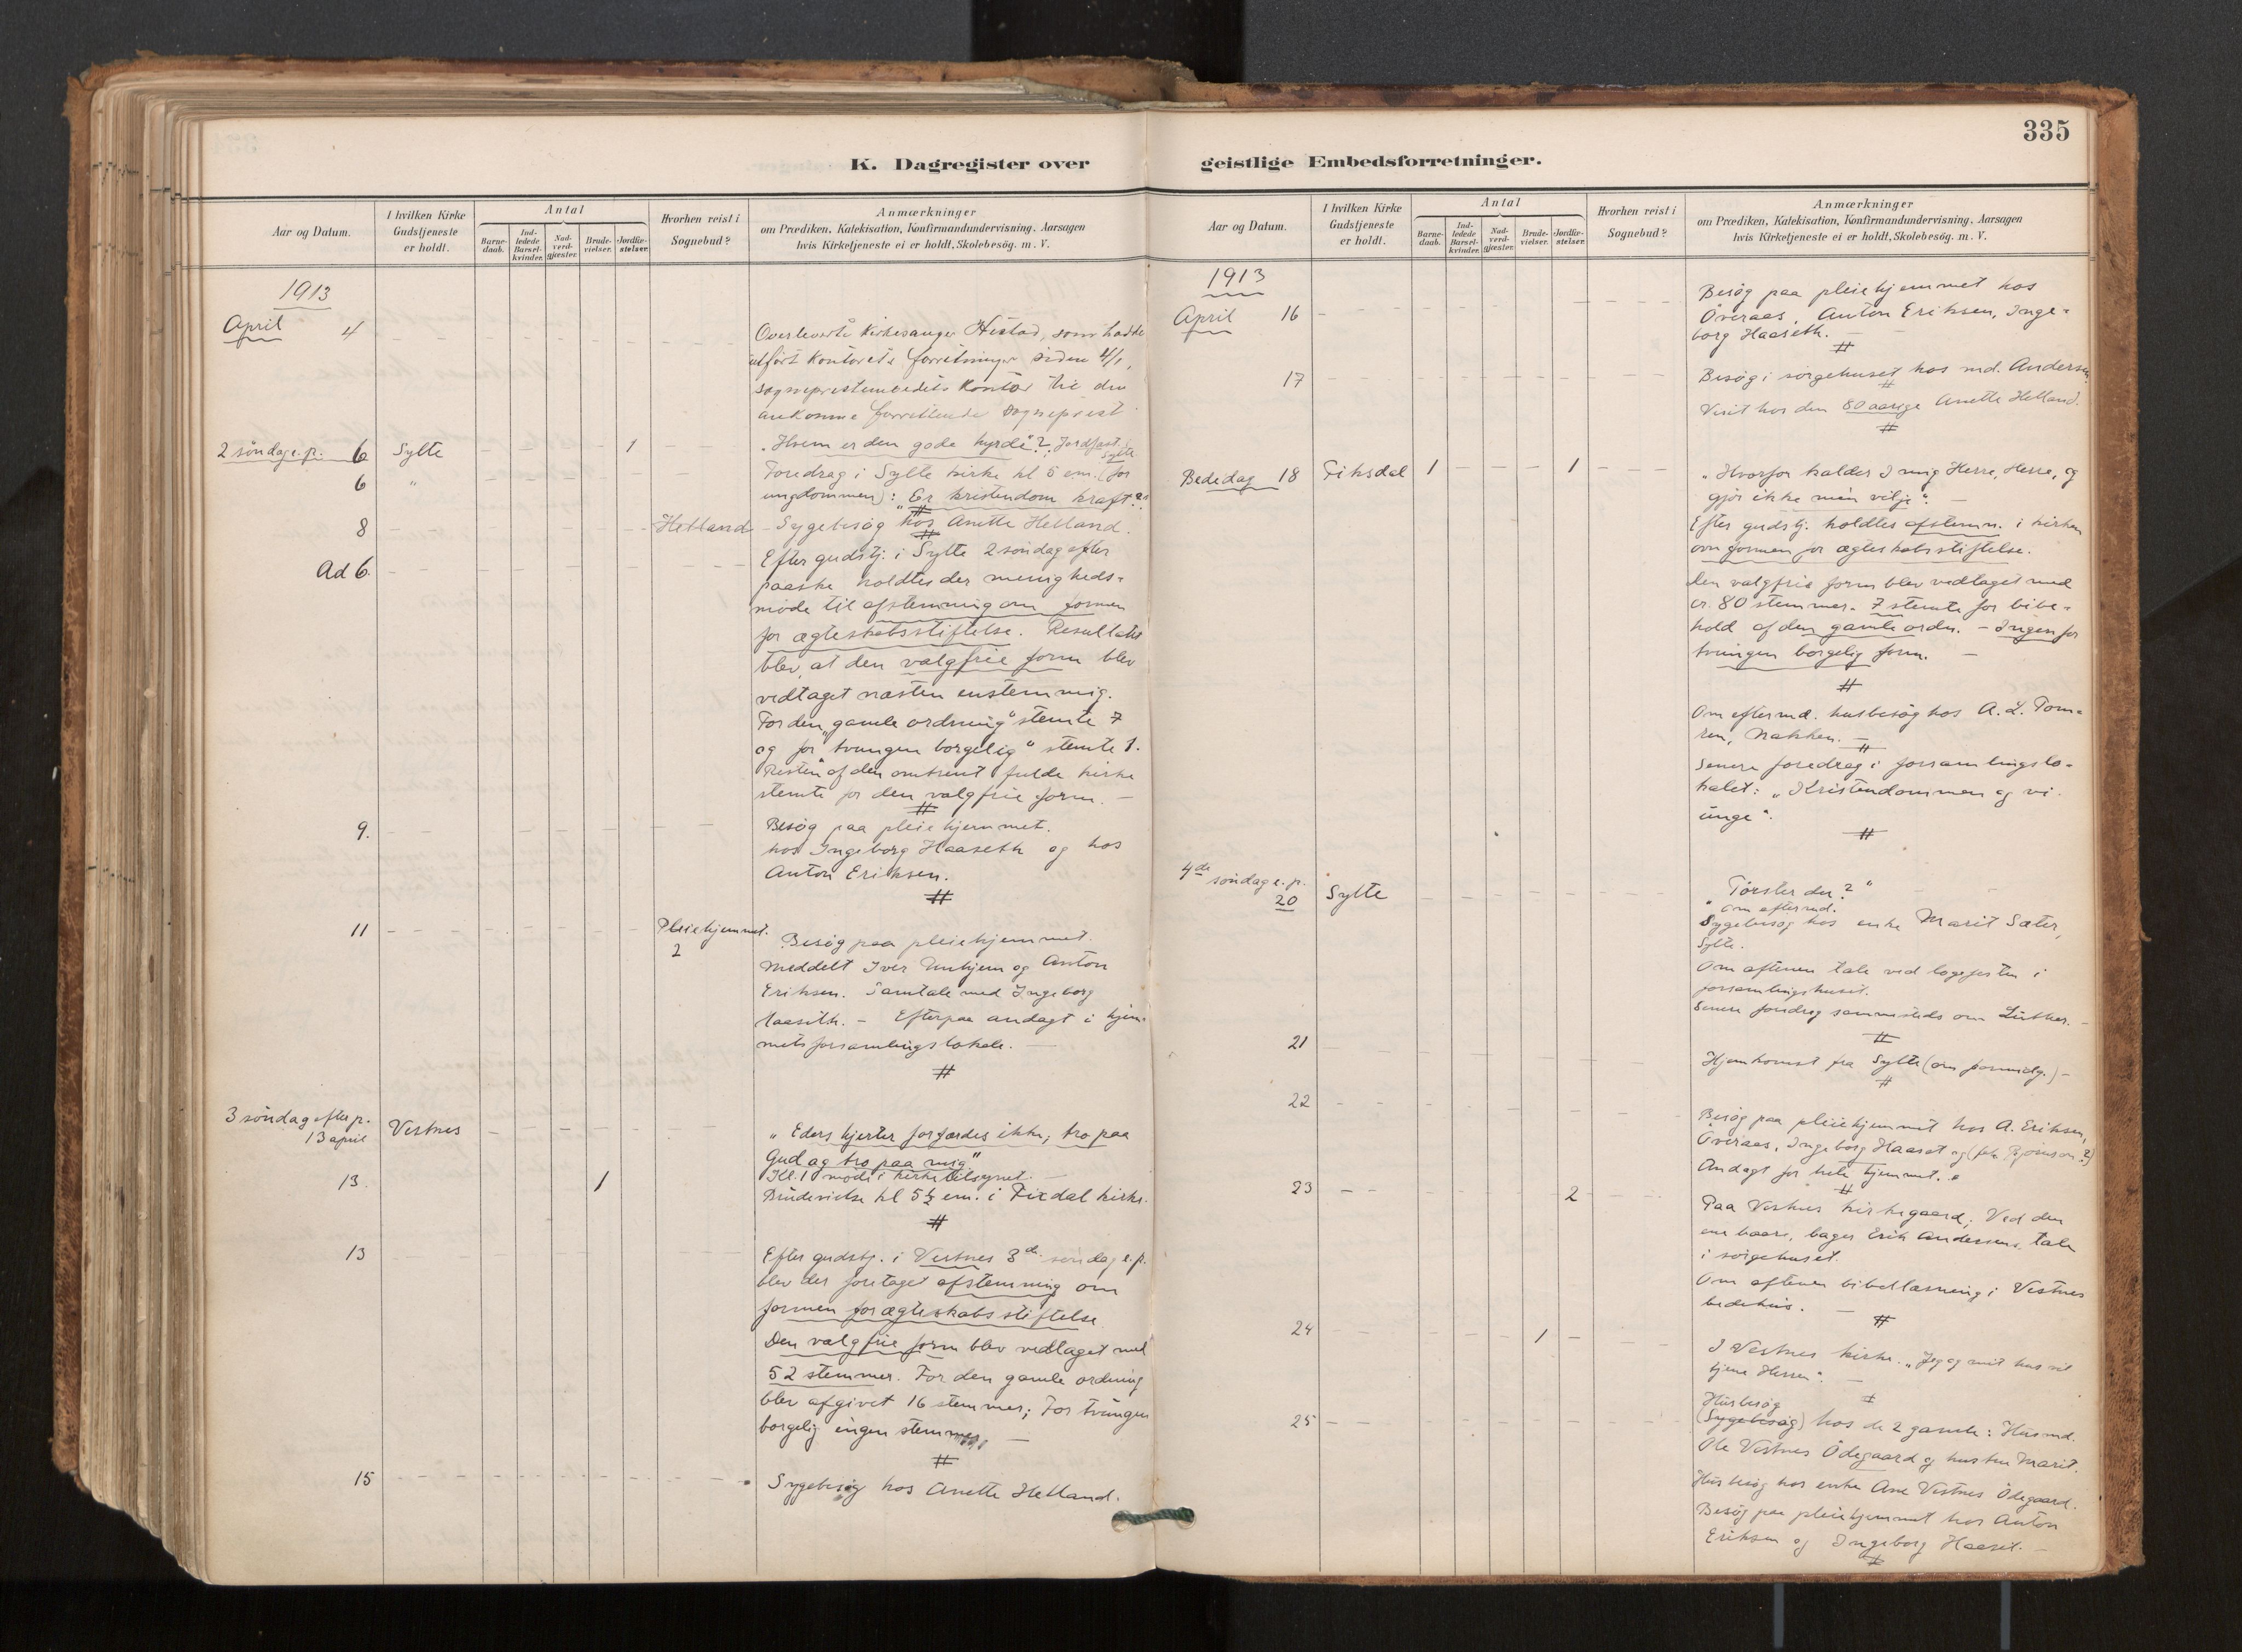 335
K. Dagregister over
geistlige Embedsforretninger.
Aar og Datum.
I hvilken Kirke
Gudstjeneste
er holdt.
Antal
Barne-
daab.
Ind-
ledede
Barsel-
kvinder.
Nad-
verd-
gjæster.
Brude-
vielser.
Jordfæ-
stelser.
Hvorhen reist i
Sognebud?
Anmærkninger
om Prædiken, Katekisation, Konfirmandundervisning, Aarsagen
hvis Kirketjeneste ei er holdt, Skolebesøg. m. V.
1913
April 4
Overleverte kirkesanger Hestad, som hadde
utført kontorets forretninger siden 4/1,
sogneprestembedets kontor til den
ankomne forrettende sogneprest
2 søndag e. p. 6 Sylte 1 „Hvem er den gode hyrde"? Jordfæst.
Sylte
6 " Foredrag i Sylte kirke kl 5 em. (for
ungdommen): „Er kristendom kraft?"
8 Helland Sygebesøg hos Anette Helland.
Ad 6. Efter gudstj. i Sylte 2 søndag efter
paaske holdtes der menigheds-
møde til afstemning om formen
for ægteskabsstiftelse. Resultatet
blev, at den valgfrie form blev
vedtaget næsten enstemmig.
For den „gamle ordning" stemte 7
og for „tvungen borgelig" stemte 1.
Resten af den omtrent fulde kirke
stemte for den valgfrie form. —
9. Besøg paa pleiehjemmet.
hos Ingeborg Haaseth og hos
Anton Eriksen.
11 Pleiehjemmet.
2
Besøg paa pleiehjemmet.
Meddelt Iver Unhjem og Anton
Eriksen. Samtale med Ingeborg
Haaseth. — Efterpaa andagt i hjem-
mets forsamlingslokale. —
3 søndag efter p.
13 april Vestnes
„Eders hjerter forfærdes ikke; tro paa
Gud og tro paa mig"
Kl. 1 møde i kirketilsynet. —
13. 1 Brudevielse kl 5½ em. i Fixdal kirke.
13 Efter gudstj. i Vestnes 3de søndag e. p.
blev der foretaget afstemning om
formen for ægteskabsstiftelse
Den valgfrie form blev vedtaget med
52 stemmer. For den gamle ordning
blev afgivet 16 stemmer; For tvungen
borgelig ingen stemmer —
15 Sygebesøg hos Anette Helland.
Aar og Datum.
I hvilken Kirke
Gudstjeneste
er holdt.
Antal
Barne-
daab.
Ind-
ledede
Barsel-
kvinder.
Nad-
verd-
gjæster.
Brude-
vielser.
Jordfæ-
stelser.
Hvorhen reist i
Sognebud?
Anmærkninger
om Prædiken, Katekisation, Konfirmandundervisning, Aarsagen
hvis Kirketjeneste ei er holdt, Skolebesøg. m. V.
1913
April 16 Besøg paa pleiehjemmet hos
Överaas, Anton Eriksen, Inge-
borg Haaseth. —
17 Besøg i sørgehuset hos md. Andersen.
Visit hos den 80 aarige Anette Helland.
Bededag 18 Fiksdal 1 1 „Hvorfor kalder I mig Herre, Herre, og
gjør ikke min vilje". —
Efter gudstj. holdtes afstemn. i kirken
om formen for ægteskabsstiftelse.
Den valgfrie form blev vedtaget med
cr. 80 stemmer. 7 stemte for bibe-
hold af den gamle ordn. — Ingen for
tvungen borgelig form. —
Om eftermd. husbesøg hos A. L. Tom-
ren, Nakken. —
Senere foredrag i forsamlingslo-
kalet: „Kristendommen og vi
unge".
4de søndag e. p.
20 Sylte
„Tørster du?"
Om eftermd.
Sygebesøg hos enke Marit Sæter,
Sylte.
Om aftenen tale ved logefesten i
forsamlingshuset.
Senere foredrag sammesteds om Luther. —
21 Hjemkomst fra Sylte (om formidg.) —
22 Besøg paa pleiehjemmet hos A. Eriksen,
Överaas, Ingeborg Haaset og
Andagt for hele hjemmet.
23 2 Paa Vestnes kirkegaard; Ved den
ene baare, bager Erik Andersens, tale
i sørgehuset.
Om aftenen bibellæsning i Vestnes
bedehus. —
24 1 I Vestnes kirke. „Jeg og mit hus vil
tjene Herren". —
25 Husbesøg
(Sygebesøg) hos de 2 gamle: Husmd.
Ole Vestnes Ödegaard og hustru Marit.
Husbesøg hos enke Ane Vestnes Ödegaard.
Besøg paa pleiehjemmet hos Anton
Eriksen og Ingeborg Haaset. —